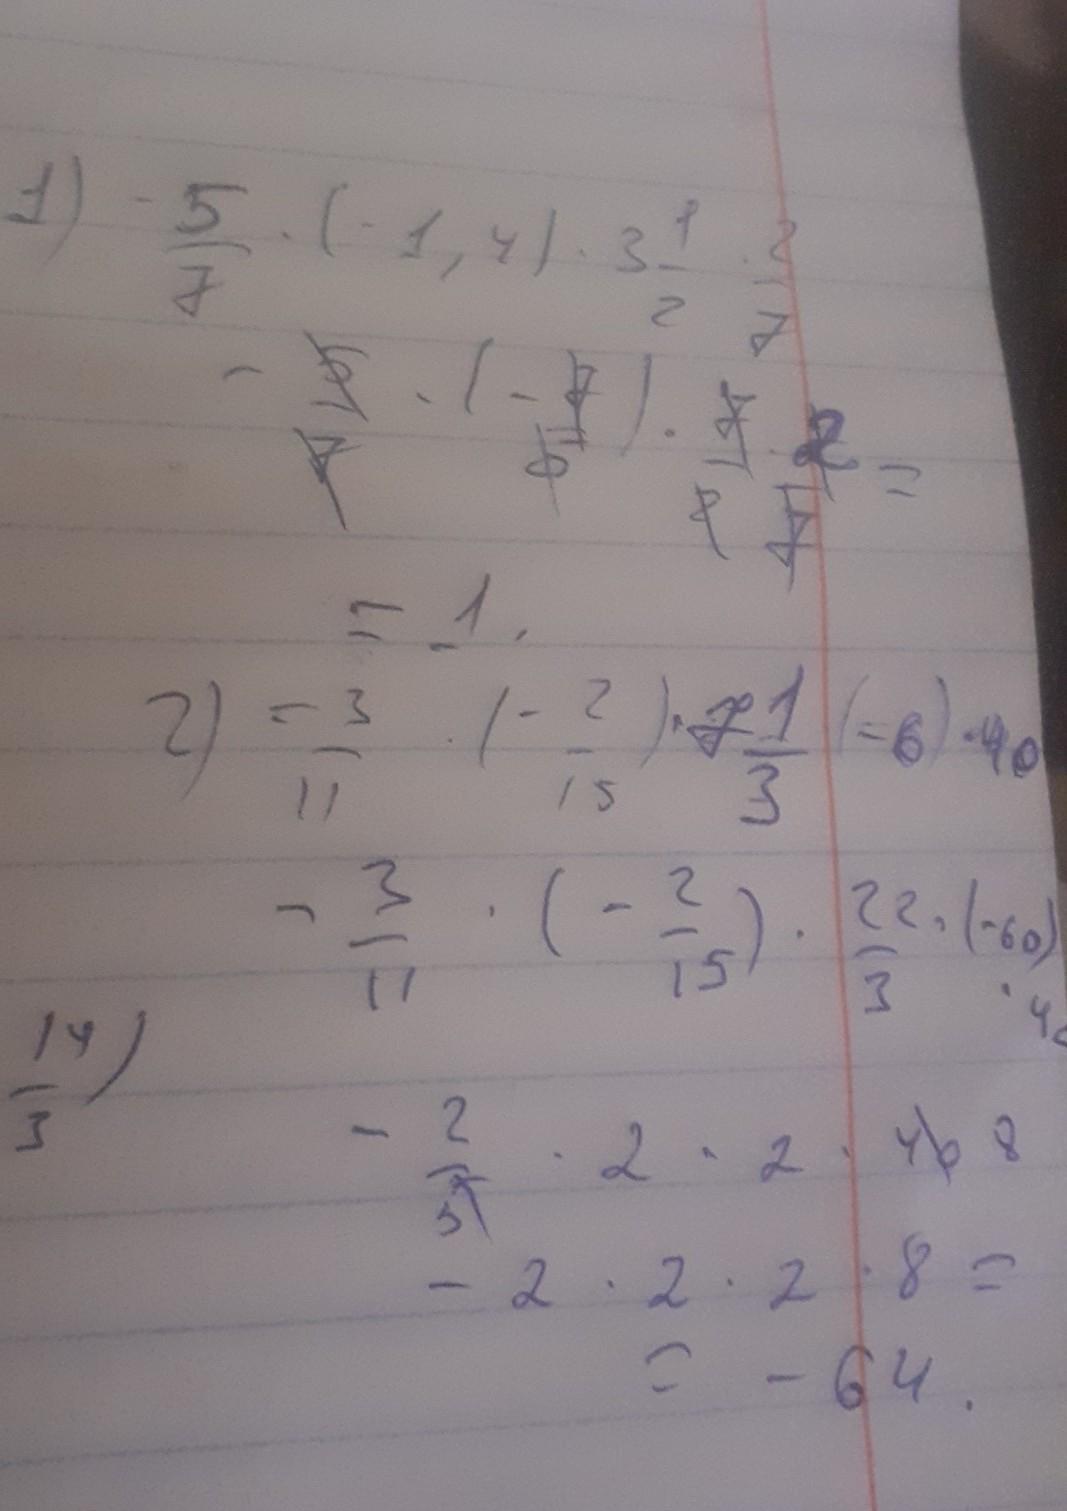 1) -5/7 · (-1,4) · 3 1/2 · 2/7
- 5/7 · (- 7/5) · 7/2 · 2/7 =
= 1.
2) - 3/11 · (- 2/15) · 7 1/3 (-6) · 40
- 3/11 · (- 2/15) · 22/3 · (-60)
· 4
14/3)
- 2/5 · 2 · 2 · 40 8
- 2 · 2 · 2 · 8 =
= - 64.